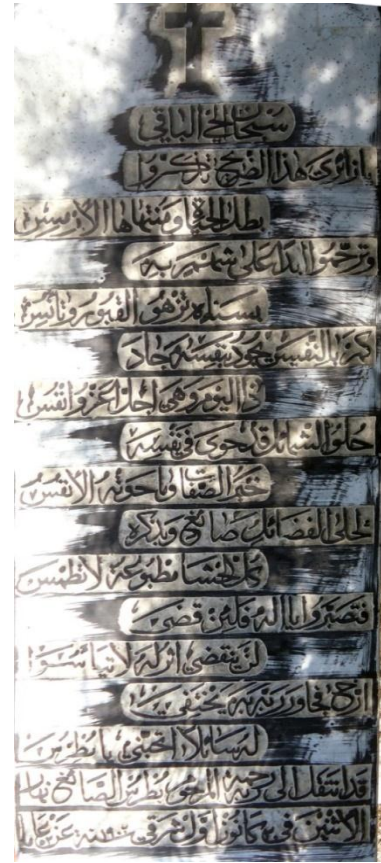 سبحان الحي الباقي
يا زائري هذا الضريح تذكروا
بطل الحياة ومنتهاها الارمس
وترحموا ابدا على شهم به
بسناه تزهو القبور وتأنس
كنز النفيس بجود بنفسه جاد
ذا اليوم وهي اجل اعز وانفس
حلو الشمائل قد حوى في نفسه
خير الصفات وما حوته الانفس
لحلى الفضائل صائغ وبذكره
كل الحشا مطبوعة لا تطمس
فتصبروا يا اله فلئن قضى
لن ينقضي اثر له لا تيأسوا
ارخ في ورى به يحتفي
له سائلا اتحبني يا بطرس
قد انتقل الى رحمة المرحوم بطرس الصائغ نهار
الاثنين في كانون اول شرقي سنة